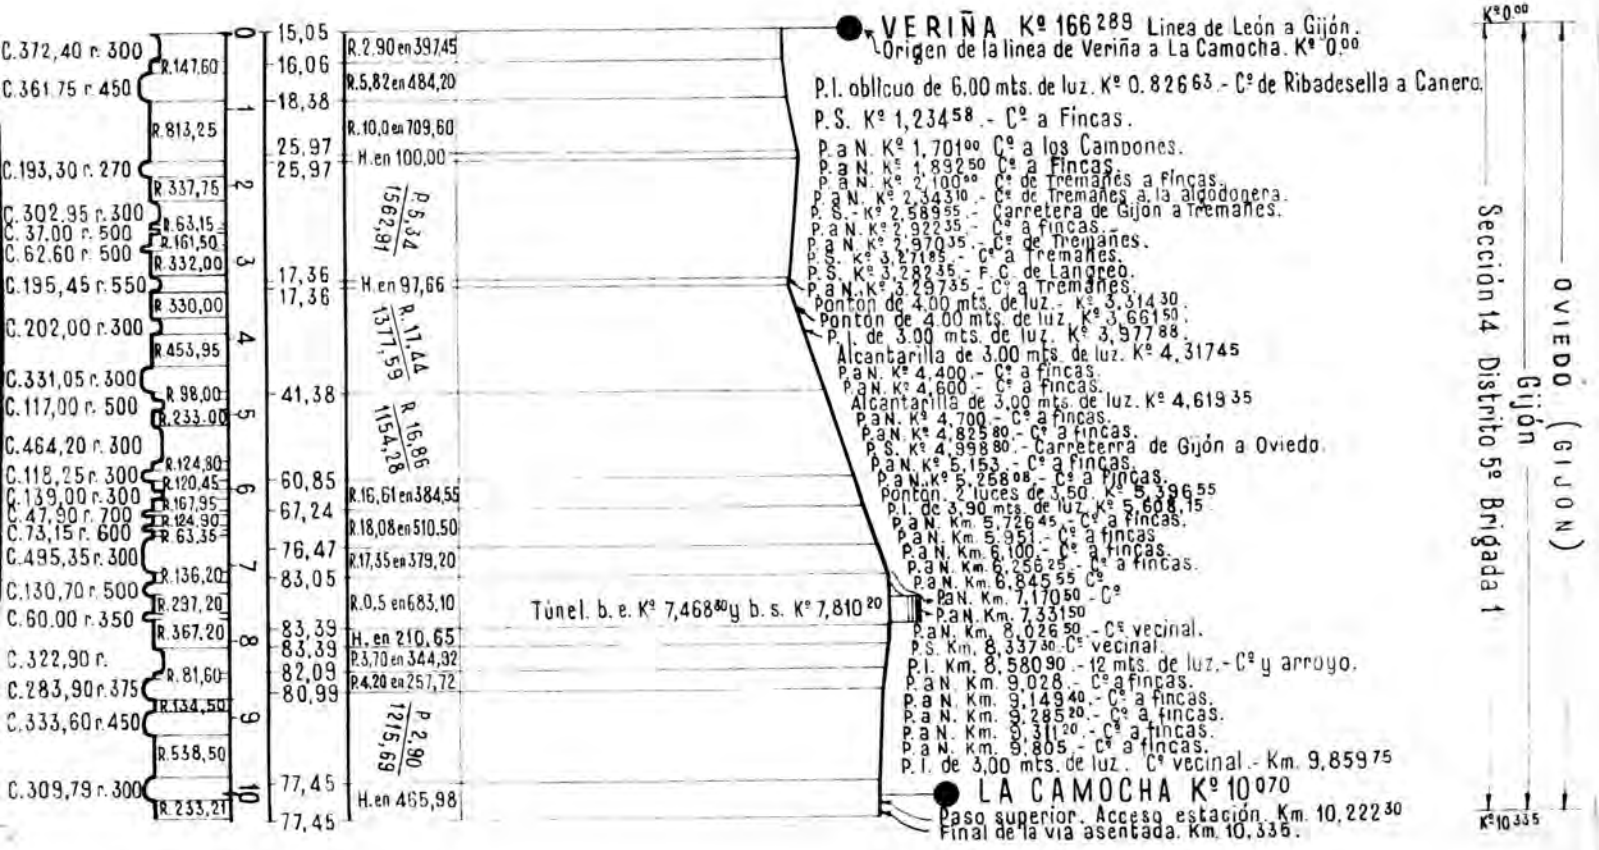 C.372,40 r. 300
C.361.75 r. 450
C.193,30 r. 270
C.302.95 r.300
C. 37.00 r. 500
C. 62.60 r. 500
C.195,45 r. 550
C.202,00 r.300
C.331,05 r. 300
C.117,00 r. 500
C.464,20 r. 300
C.118,25 r. 300
C.139,00 r. 300
C. 47,90 r. 700
C. 73,15 r. 600
C.495,35 r. 300
C.130,70 r. 500
C. 60.00 r. 350
C.322,90 r.
C.283,90 r. 375
C.333,60 r. 450
C.309,79 r. 300
R.147,60
R.813,25
R.337,75
R.63,15
R.161,50
R.332,00
R.330,00
R.453,95
R.98,00
R.233.00
R.124,80
R.120,45
R.167,95
R.124,90
R.63,35
R.136,20
R.297,20
R.367,20
R.81,60
R.134,50
R.538,50
R.233,21
0
1
2
3
4
5
6
7
8
9
10
15,05
16,06
18,38
25,97
25,97
17,36
17,36
41,38
60,85
67,24
76,47
83,05
83,39
83,39
82,09
80,99
77,45
77,45
R.2.90 en 397,45
R.5,82 en 484,20
R.10,0 en 709,60
H.en 100,00
P. 5,34
1562,81
H.en 97,66
R. 17,44
1377,59
R 16,86
1154,28
R.16,61 en 384,55
R.18,08 en 510.50
R.17,35 en 379,20
R.0,5 en 683,10
H. en 210,65
P.3,70 en 344,92
P.4,20 en 257,72
P. 2,90
1215,69
H.en 465,98
Túnel. b. e. Kº 7,468 80 y b. s. Kº 7,810 20
VERIÑA Kº 166 289 Linea de León a Gijón.
Origen de la linea de Veriña a La Camocha. Kº 0.00
P.I. oblicuo de 6,00 mts. de luz. Kº 0.826 63.- Cº de Ribadesella a Canero.
P.S. Kº 1,234 58 .- Cº a Fincas.
P. a N. Kº 1,701 00 Cº a los Campones.
P. a N. Kº 1,892 50 Cº a Fincas.
P. a N. Kº 2,100 00 Cº de Tremañes a fincas.
P. a N. Kº 2,343 10 .- Cº de Tremañes a la algodonera.
P. S. - Kº 2,589 55 .- Carretera de Gijón a Tremañes.
P. a N. Kº 2,922 35 .- Cº a fincas.-
P. a N. Kº 2,970 35 .- Cº de Tremañes.
P. S. Kº 3,271 85 .- Cº a Tremañes.
P. S. Kº 3,282 35 .- F. C. de Langreo.
P. a N. Kº 3,297 35 .- Cº a Tremañes.
Pontón de 4.00 mts. de luz.- Kº 3,314 30.
Pontón de 4.00 mts. de luz. Kº 3,661 50.
P. I. de 3.00 mts. de luz. Kº 3,977 88.
Alcantarilla de 3.00 mts. de luz. Kº 4,317 45
P. a N. Kº 4,400 .- Cº a fincas.
P. a N. Kº 4,600 .- Cº a fincas.
Alcantarilla de 3,00 mts. de luz. Kº 4,619 35
P. a N. Kº 4,700 .- Cº a fincas.
P. a N. Kº 4,825 80 .- Cº a fincas.
P. S. Kº 4,998 80 .- Carreterra de Gijón a Oviedo.
P. a N. Kº 5,153 .- Cº a fincas.
P. a N. Kº 5,258 08 .- Cº a fincas.
Pontón. 2 luces de 3,50. Kº 5,396 55
P. I. de 3,90 mts. de luz. Kº 5,608,15
P. a N. Km. 5,726 45 .- Cº a fincas.
P. a N. Km. 5.951 .- Cº a fincas
P. a N. Km. 6,100 .- Cº a fincas.
P. a N. Km. 6,256 25 .- Cº a fincas.
P. a N. Km. 6,845 55 Cº
P. a N. Km. 7,170 50 - Cº
P. a N. Km. 7,331 50
P. a N. Km. 8,026 50 .- Cº vecinal.
P. S. Km. 8,337 30 .- Cº vecinal.
P. I. Km. 8,580 90 .- 12 mts. de luz.- Cº y arroyo.
P. a N. Km. 9,028 .- Cº a fincas.
P. a N. Km. 9,149 40 .- Cº a fincas.
P. a N. Km. 9,285 20 .- Cº a fincas.
P. a N. Km. 9,311 20 .- Cº a fincas.
P. a N. Km. 9,805 .- Cº a fincas.
P. I. de 3,00 mts. de luz. Cº vecinal.- Km. 9,859 75
LA CAMOCHA Kº 10 070
Paso superior. Acceso estación. Km. 10,222 30
Final de la via asentada. Km. 10,335.
Kº 0.00
Sección 14 Distrito 5º Brigada 1
Gijón
OVIEDO (GIJON)
Kº 10 335